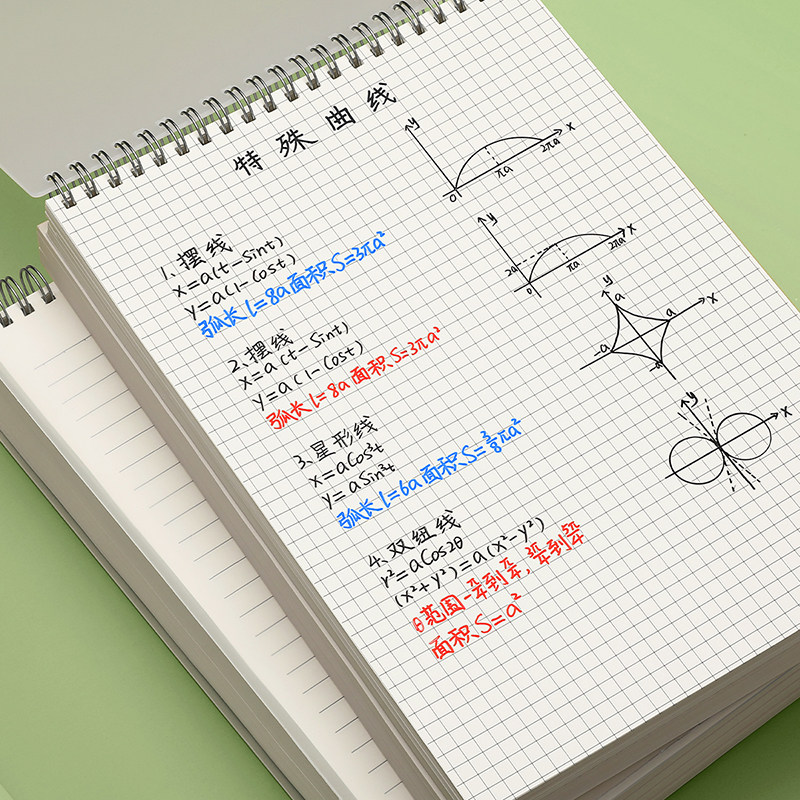 特殊曲线
1、摆线
x=a(t-Sint)
y=a(1-Cost)
弧长l=8a面积S=3πa²
2、摆线
x=a(t-Sint)
y=a(1-Cost)
弧长l=8a面积S=3πa²
3、星形线
x=aCos³t
y=aSin³t
弧长l=6a面积S=3/8πa²
4、双纽线
r²=aCos2θ
(x²+y²)=a(x²-y²)
θ范围-π/4到π/4, 3π/4到5π/4
面积S=a²
y
x
0
πa
2πa
y
x
2a
0
πa
2πa
y
a
a
x
-a
-a
y
x